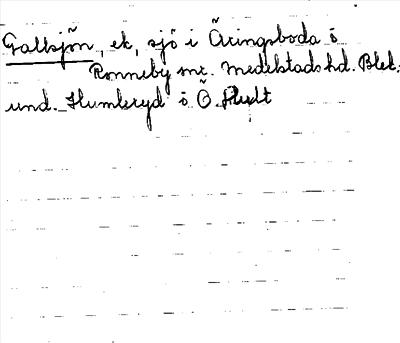 Galtsjön, ek, sjö i Äringsboda o
Ronneby sn. Medelstads hd. Blek.
und. Humleryd o Ö. Hult